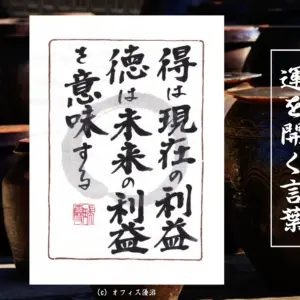 運を開く言葉
得は現在の利益
徳は未来の利益
を意味する
(c) オフィス蓮沼